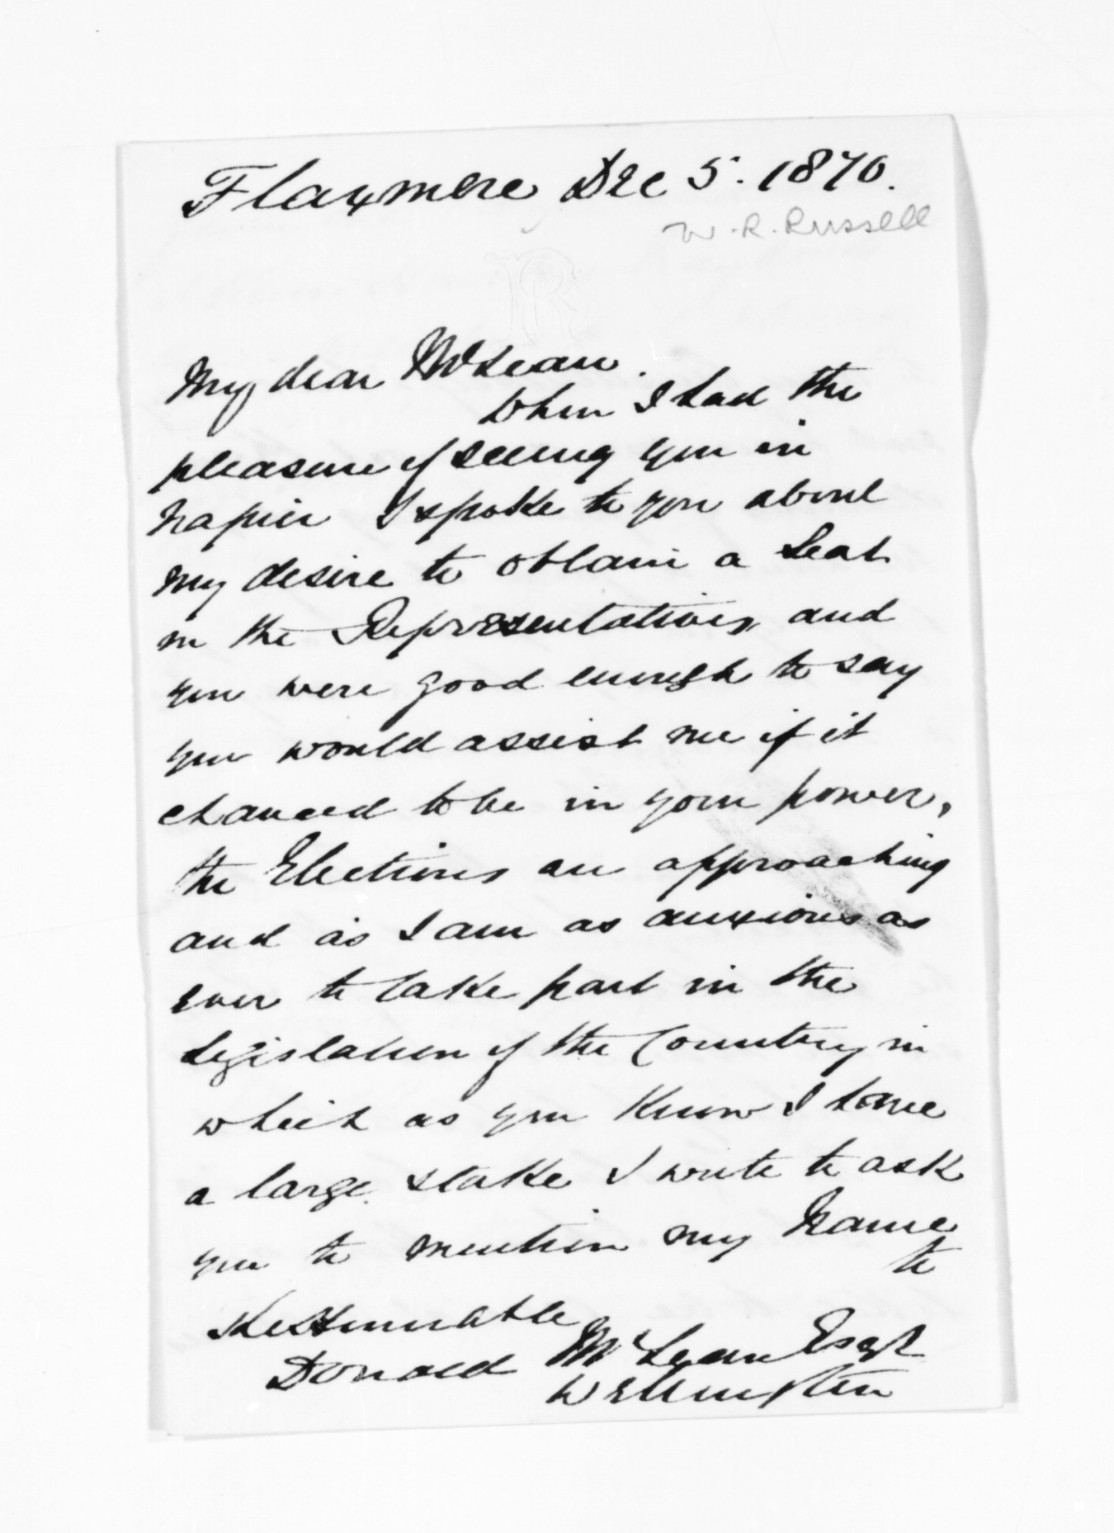 Flaxmere Dec 5. 1870.
W. R. Russell
R
My dear McLean.
When I had the
pleasure of seeing you in
Napier I spoke to you about
my desire to obtain a Seat
in the Representatives, and
you were good enough to say
you would assist me if it
chanced to be in your power,
the Elections are approaching
and as I am as anxious as
ever to take part in the
Legislation of the Country in
which as you know I have
a large stake I write to ask
you to mention my Name
to
The Honourable
Donald McLean Esqr
Wellington